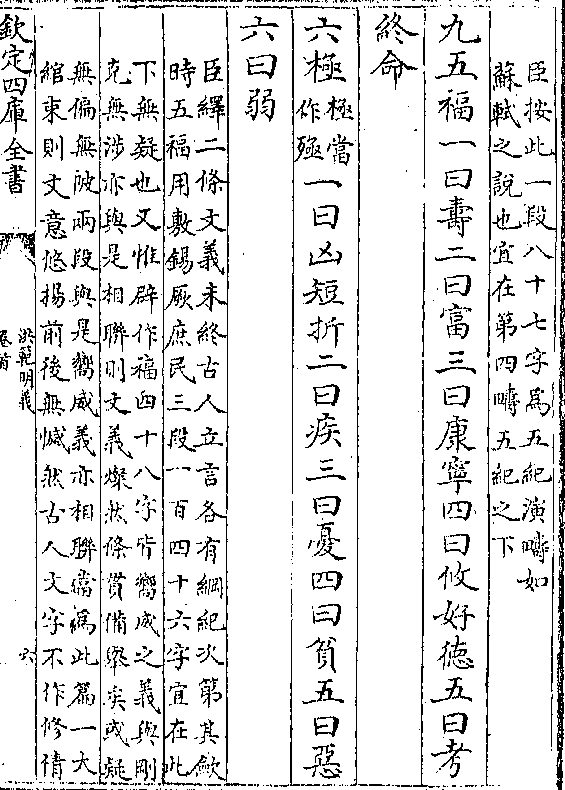 臣按此一段八十七字為五紀演疇如
蘇軾之說也宜在第四疇五紀之下
九五福一曰壽二曰富三曰康寧四曰攸好徳五曰考
終命
六極極當作殛一曰凶短折二曰疾三曰憂四曰貧五曰惡
六曰弱
臣繹二條文義未終古人立言各有綱紀次第其歛
時五福用敷錫厥庶民三段一百四十六字宜在此
下無疑也又惟辟作福四十八字皆嚮威之義與剛
克無涉亦與是相聯則文義燦然條貫備舉矣或疑
無偏無陂兩段與是嚮威義亦相聯當為此篇一大
綰束則文意悠揚前後無憾然古人文字不作修倩
欽定四庫全書
洪範明義
卷首
六